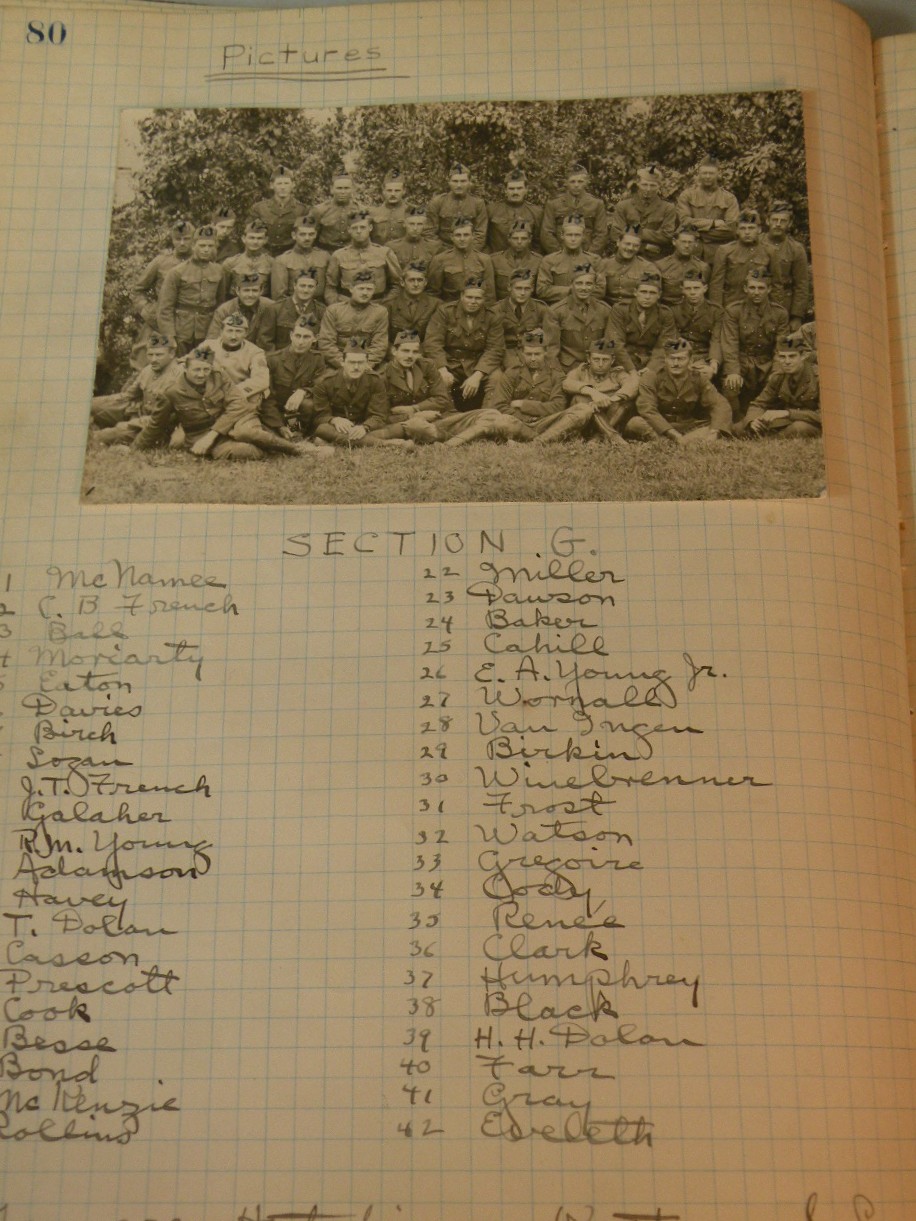 80
Pictures
SECTION G.
1 McNamee
2 C. B French
3 Ball
4 Moriarty
5 Eaton
Davies
Birch
Sozan
J.T. French
Galaher
R.M. Young
Adamson
Havey
T. Dolan
Casson
Prescott
Cook
Besse
Bond
McKenzie
Rollins
22 Miller
23 Dawson
24 Baker
25 Cahill
26 E. A. Young Jr.
27 Wornall
28 Van Ingen
29 Birkin
30 Winebrenner
31 Frost
32 Watson
33 Gregoire
34 Cody
35 Renée
36 Clark
37 Humphrey
38 Black
39 H. H. Dolan
40 Farr
41 Gray
42 Eveleth